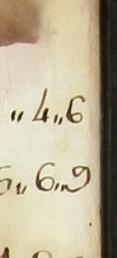 „ 4 „ 6
„ 6 „ 9